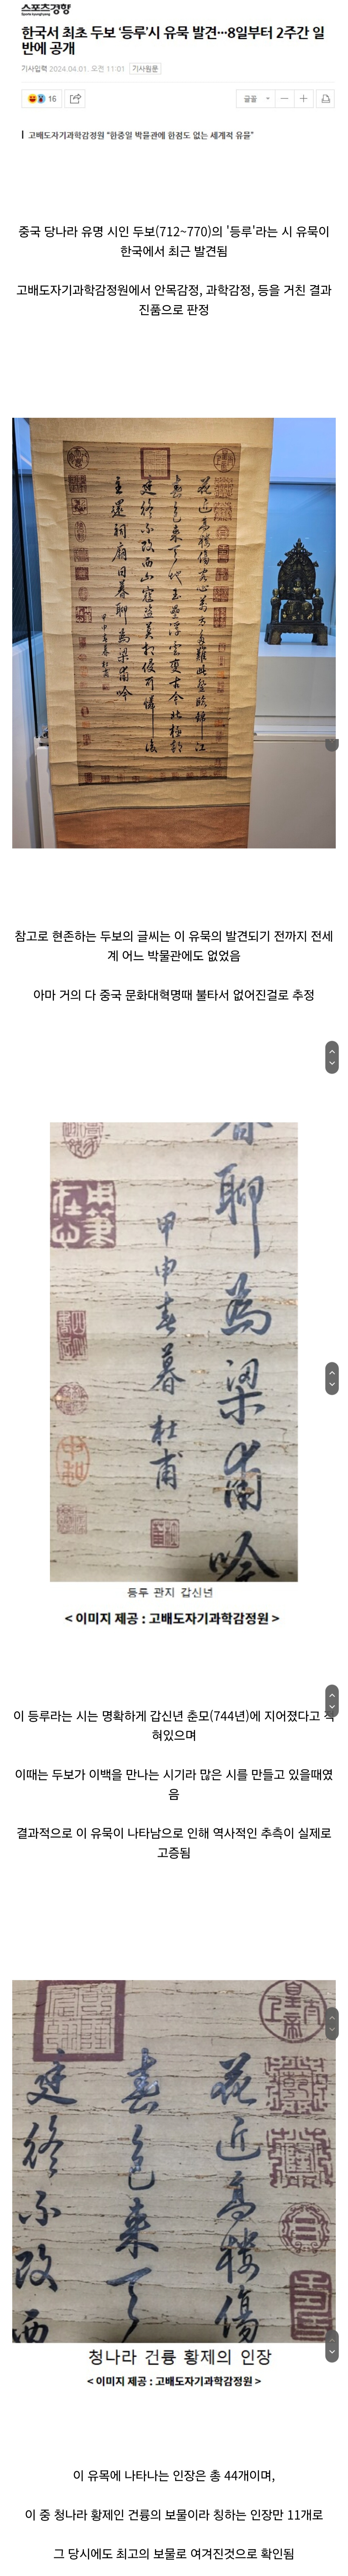 스포츠경향
한국서 최초 두보 ‘등루’시 유묵 발견···8일부터 2주간 일
반에 공개
기사입력 2024.04.01. 오전 11:01 기사원문
16
글꼴
고배도자기과학감정원 “한중일 박물관에 한점도 없는 세계적 유물”
중국 당나라 유명 시인 두보(712~770)의 '등루'라는 시 유묵이
한국에서 최근 발견됨
고배도자기과학감정원에서 안목감정, 과학감정, 등을 거친 결과
진품으로 판정
花近高樓傷客心萬方多難此登臨錦江
春色來天地玉壘浮雲變古今北極朝
廷終不改西山寇盜莫相侵可憐後
主還祠廟日暮聊為梁甫吟
甲申春暮杜甫
참고로 현존하는 두보의 글씨는 이 유묵의 발견되기 전까지 전세
계 어느 박물관에도 없었음
아마 거의 다 중국 문화대혁명때 불타서 없어진걸로 추정
暮聊為梁甫吟
甲申春暮杜甫
등루 관지 갑신년
< 이미지 제공 : 고배도자기과학감정원 >
이 등루라는 시는 명확하게 갑신년 춘모(744년)에 지어졌다고 적
혀있으며
이때는 두보가 이백을 만나는 시기라 많은 시를 만들고 있을때였
음
결과적으로 이 유묵이 나타남으로 인해 역사적인 추측이 실제로
고증됨
花近高樓傷
春色來天
廷終不改西
청나라 건륭 황제의 인장
< 이미지 제공 : 고배도자기과학감정원 >
이 유목에 나타나는 인장은 총 44개이며,
이 중 청나라 황제인 건륭의 보물이라 칭하는 인장만 11개로
그 당시에도 최고의 보물로 여겨진것으로 확인됨